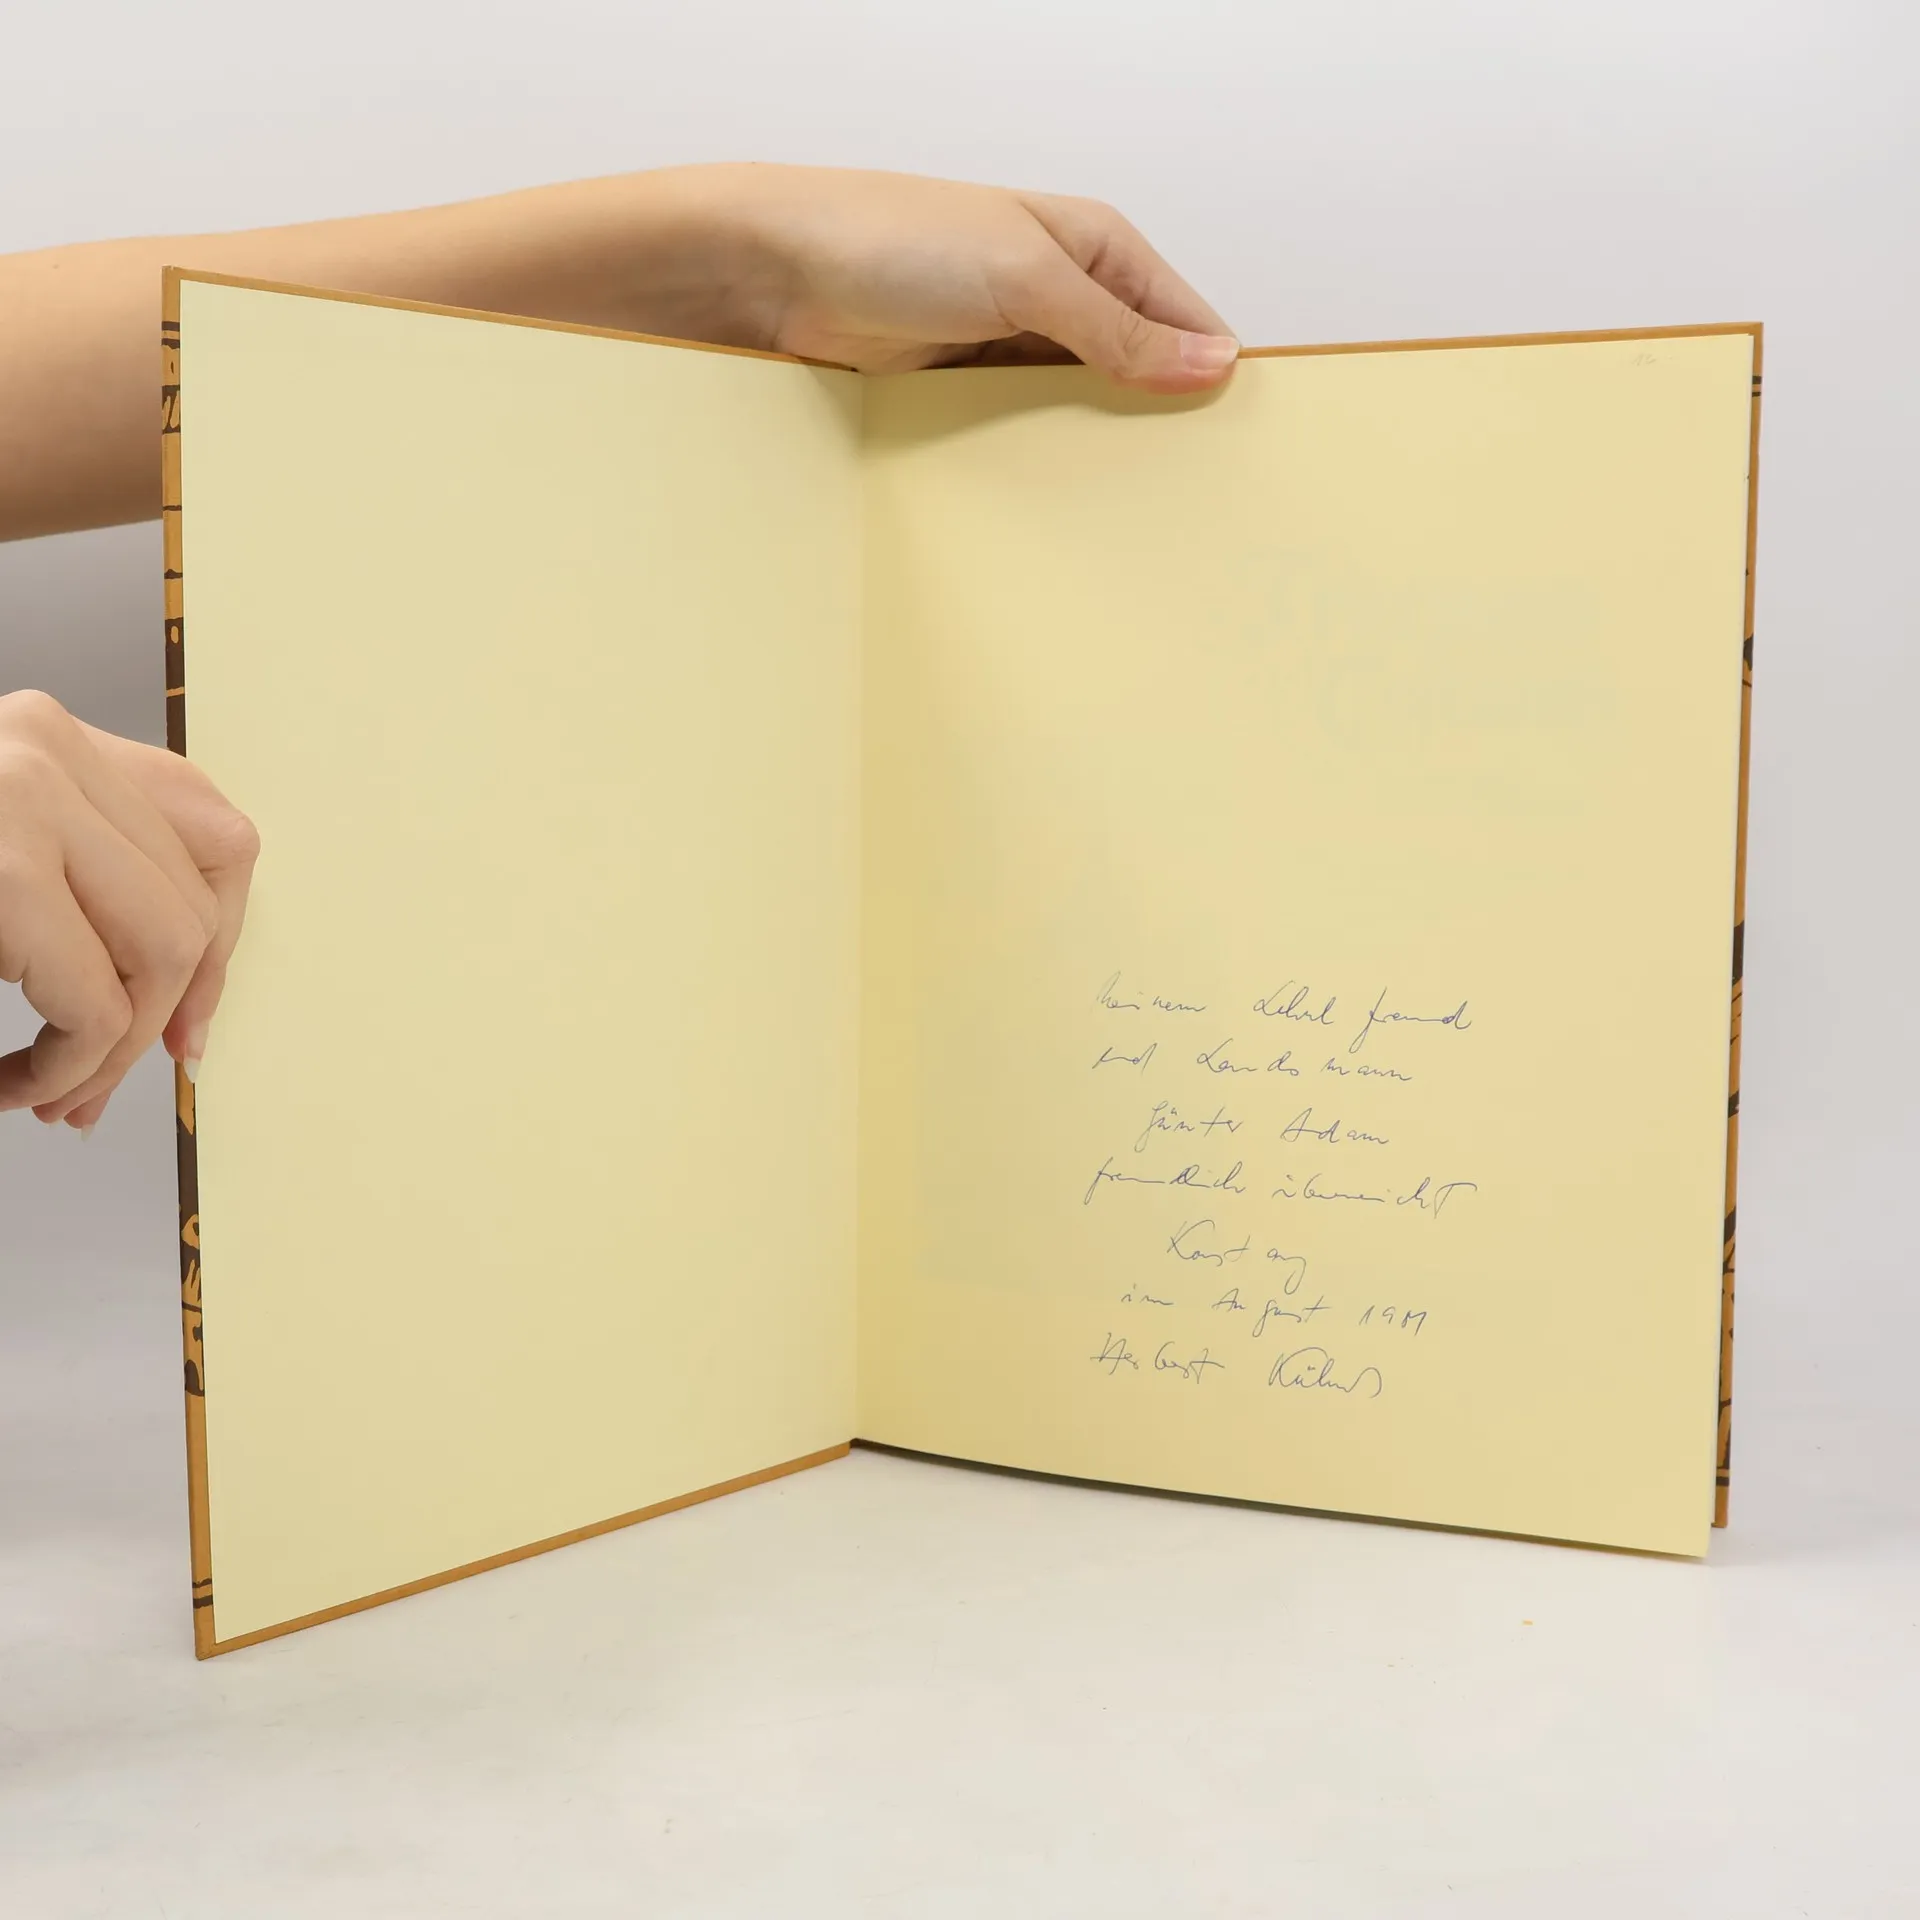 meinem
und Landsmann
Günter Adam
freundlich überreicht
Konstanz
im August 1981
Herbert